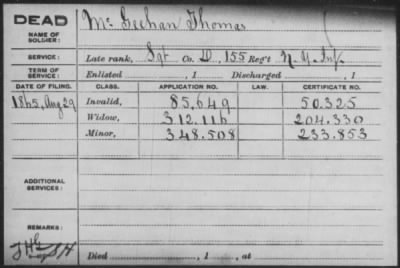 DEAD
NAME OF SOLDIER: Mc Geehan Thomas
SERVICE: Late rank, Sgt Co. D, 155 Reg't N.Y. Inf.
TERM OF SERVICE: Enlisted , 1 Discharged , 1
DATE OF FILING. CLASS. APPLICATION NO. LAW. CERTIFICATE NO.
1865, Aug 29 Invalid, 85,649 50.325
Widow, 312.116 204.330
Minor, 348.508 233.853
ADDITIONAL SERVICES:
REMARKS:
Died , 1 , at